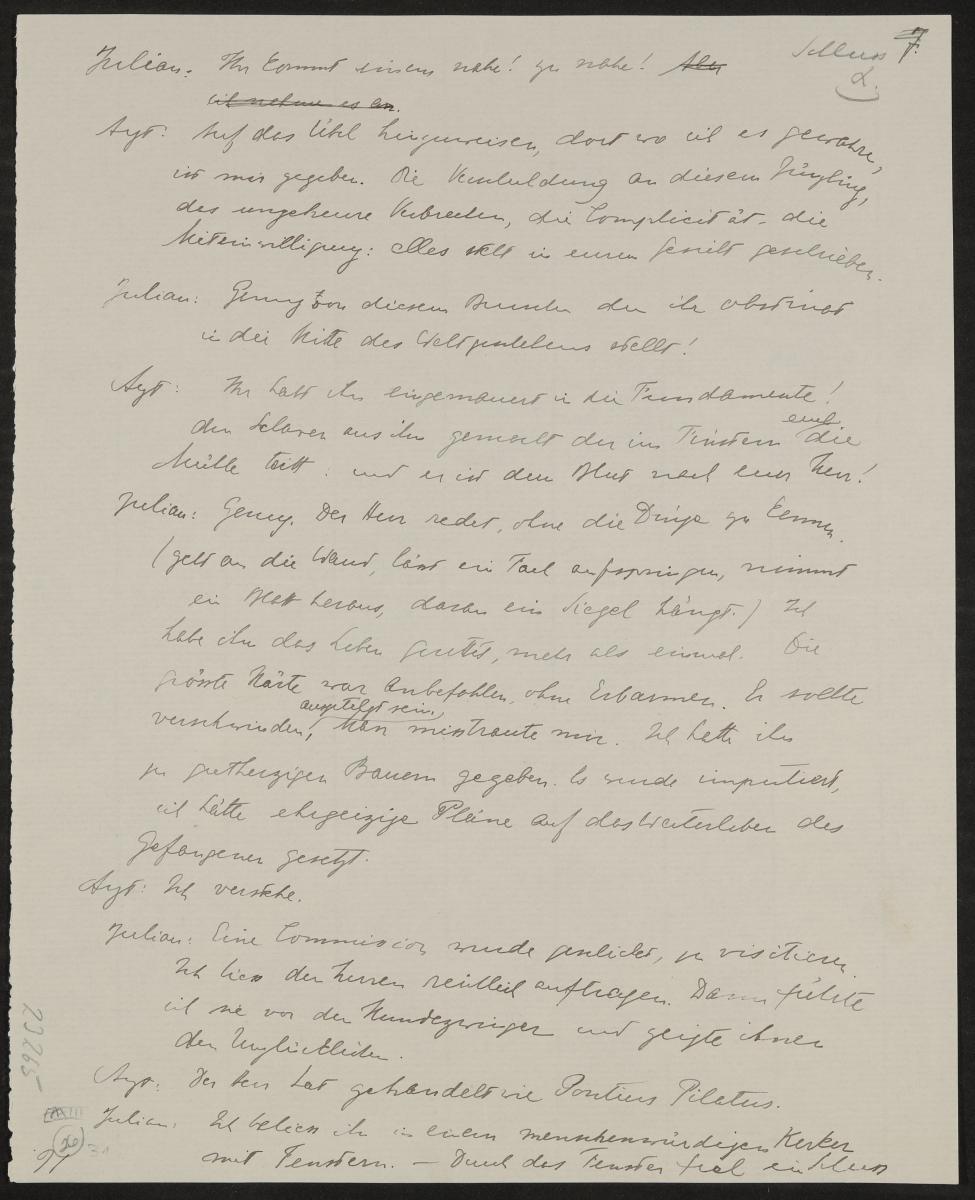 Schluss 7.
α.
Julian: Ihr kommt einem nahe! zu nahe! Aber
ich nehme es an.
Arzt: Auf das Übel hinzuweisen, dort wo ich es gewahre,
ist mir gegeben. Die Verschuldung an diesem Jüngling,
das ungeheure Verbrechen, die Complicität, die
Miteinwilligung: alles steht in eurem Gesicht geschrieben.
Julian: Genug von diesem Burschen den ihr obstinat
in die Mitte des Weltgeschehens stellt!
Arzt: Ihr habt ihn eingemauert in die Fundamente!
den Sclaven aus ihm gemacht der im Finstern euch die
Mühle tritt: und er ist dem Blut nach euer Herr!
Julian: Genug. Der Herr redet, ohne die Dinge zu kennen.
(geht an die Wand, lässt ein Fach aufspringen, nimmt
ein Blatt heraus, daran ein Siegel hängt.) Ich
habe ihm das Leben gerettet, mehr als einmal. Die
grösste Härte war anbefohlen, ohne Erbarmen. Er sollte
ausgetilgt sein,
verschwinden, Man misstraute mir. Ich hatte ihn
zu gutherzigen Bauern gegeben. Es wurde imputiert,
ich hätte ehrgeizige Pläne auf das Weiterleben des
Gefangenen gesetzt.
Arzt: Ich verstehe.
Julian: Eine Commission wurde geschickt, zu visitieren.
Ich liess den Herren reichlich auftragen. Dann führte
ich sie vor den Hundezwinger und zeigte ihnen
den Unglücklichen.
Arzt: Der Herr hat gehandelt wie Pontius Pilatus.
Julian: Ich beliess ihn in einem menschenwürdigen Kerker
mit Fenstern. — Durch das Fenster fiel ein Schuss